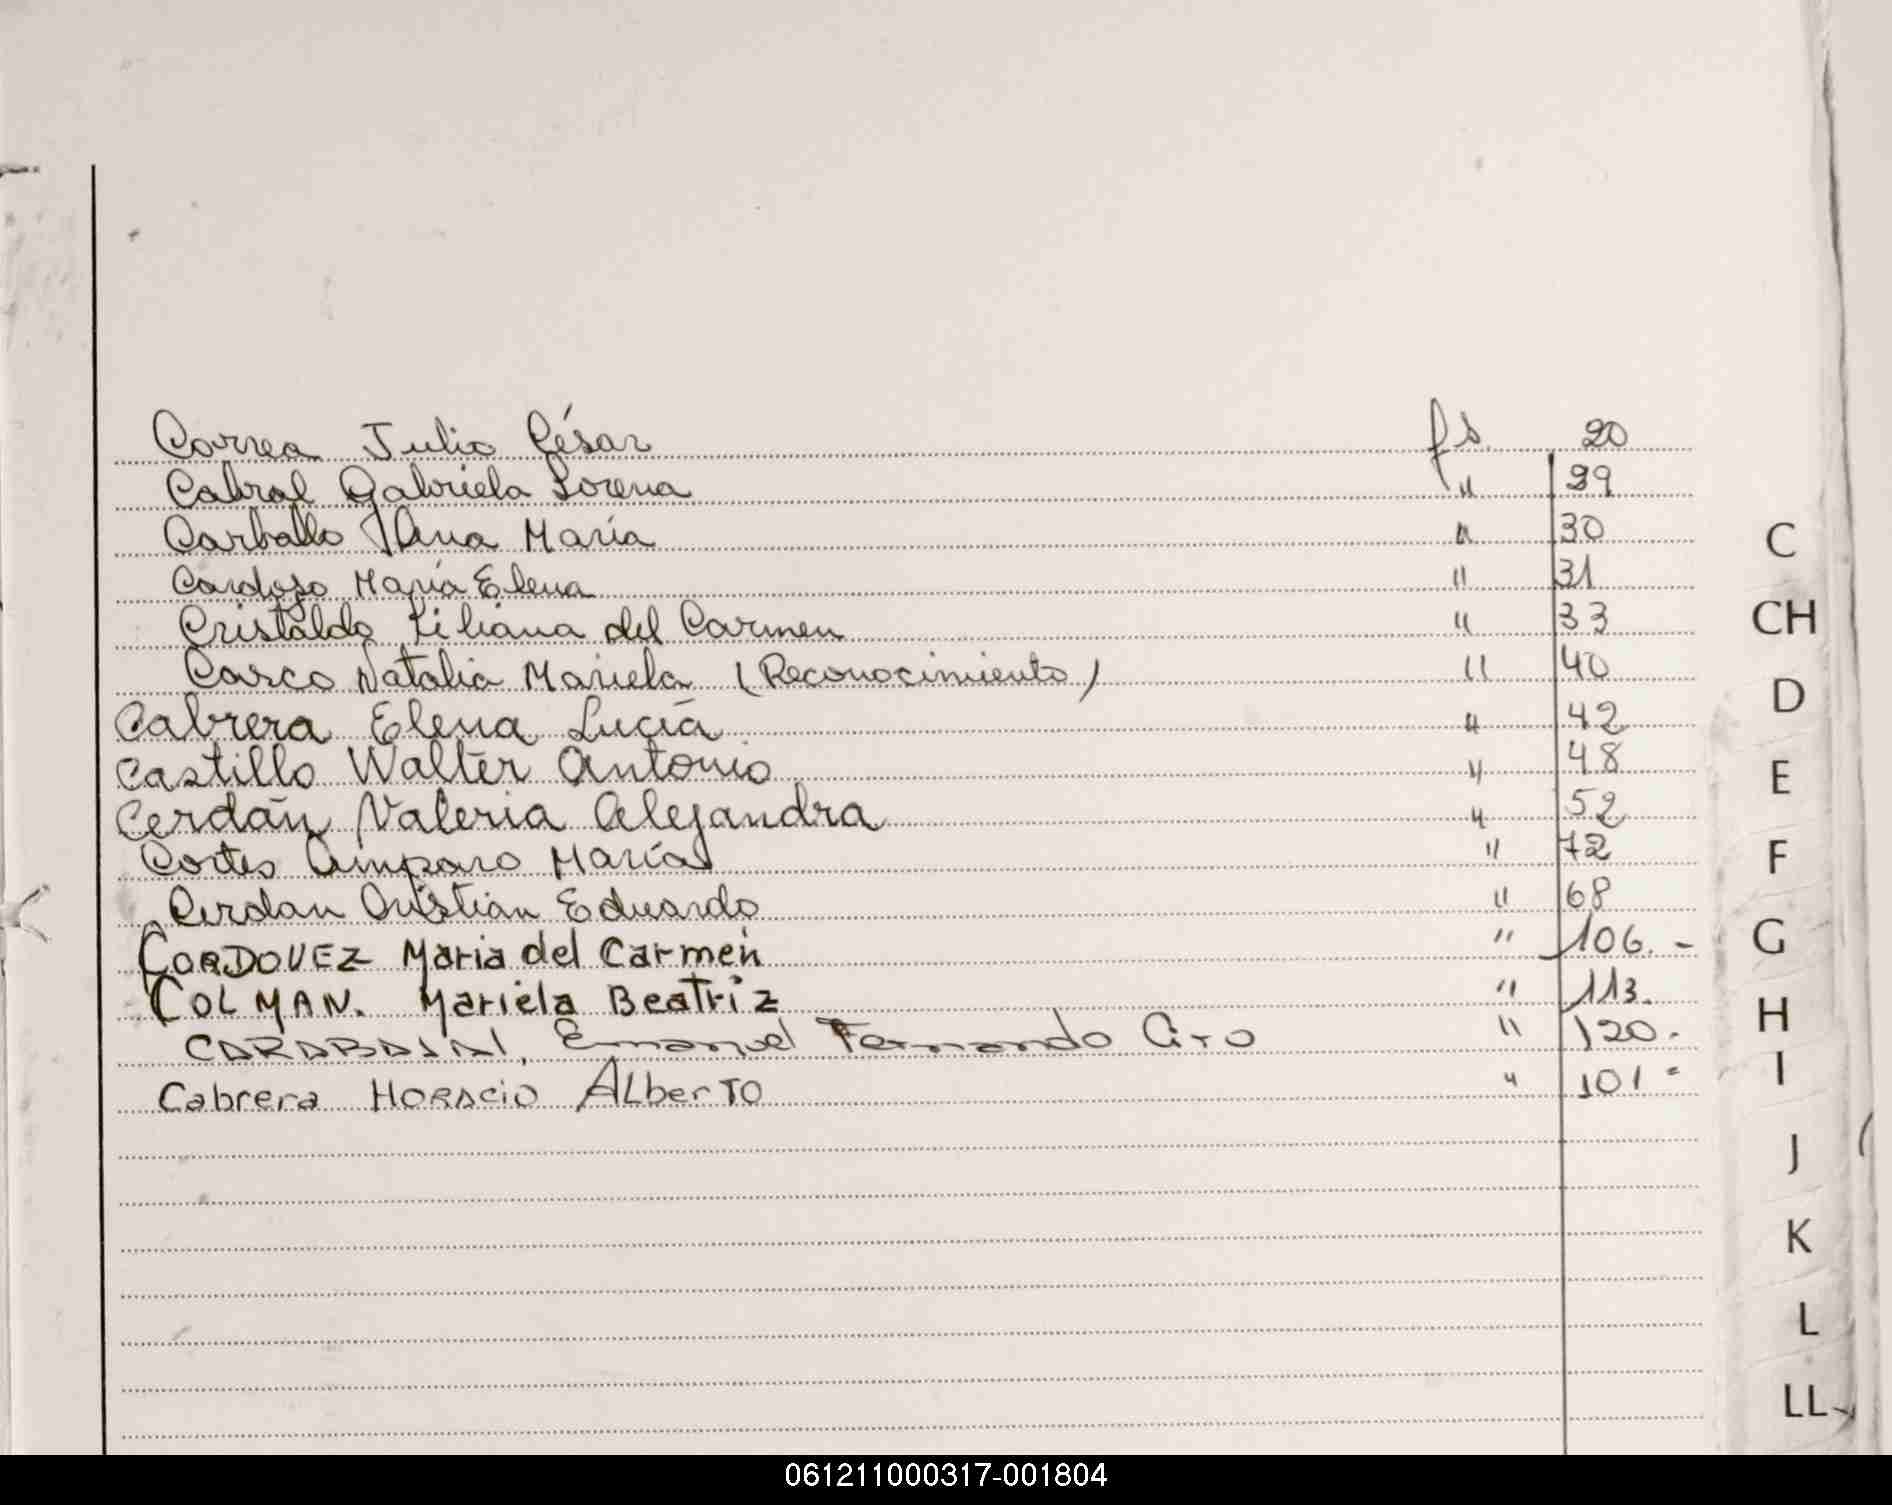 Correa Julio César fs. 20
Cabral Gabriela Lorena " 29
Carballo Ana María " 30
Cardozo María Elena " 31
Cristaldo Liliana del Carmen " 33
Carco Natalia Mariela (Reconocimiento) " 40
Cabrera Elena Lucía " 42
Castillo Walter Antonio " 48
Cerdán Valeria Alejandra " 52
Cortes Amparo María " 72
Cerdan Cristian Eduardo " 68
CORDOVEZ Maria del Carmen " 106.-
COLMAN. Mariela Beatriz " 113.
CARABAJAL, Emanuel Fernando Ciro " 120.-
Cabrera HORACIO ALberTO " 101-
C
CH
D
E
F
G
H
I
J
K
L
LL
061211000317-001804